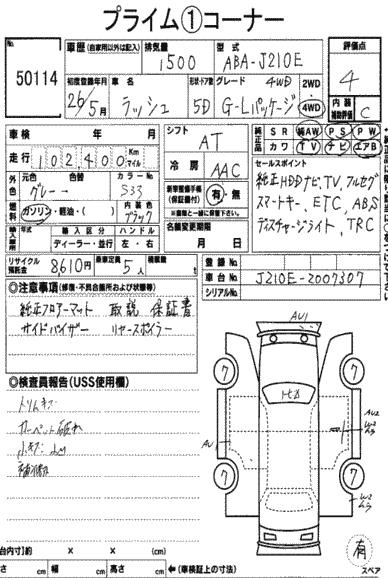 プライム①コーナー
No. 50114
車歴 (自家用以外は記入) 排気量 1500 型式 ABA-J210E 評価点 4
初度登録年月 26年5月 車名 ラッシュ 形状・ドア数 5D グレード 4WD G-Lパッケージ 2WD・4WD 内装補助評価 C
車検 年 月 シフト AT 純正品 SR 純AW PS PW
カワ TV ナビ エアB
走行 102,400 Km マイル 冷房 AAC
セールスポイント
外色 元色 グレー 色替 カラーNo. S33
純正HDDナビ、TV、フルセグ
スマートキー、ETC、ABS
ディスチャージライト、TRC
燃料 ガソリン・軽油・( ) 内装色 ブラック
新車整備手帳(保証書付) 有・無
※書類と一緒に保管
輸入車用 年式 輸入区分 ディーラー・並行 ハンドル 左・右
名義変更期限 月 日
リサイクル預託金 8,610円 乗車定員 5人 積載数
登録No.
車台No. J210E-2007307
シリアルNo.
◎注意事項 (修復・不具合箇所および状態等)
純正フロアーマット 取説 保証書
サイドバイザー リヤースポイラー
◎検査員報告(USS使用欄)
トリムキズ
カーペット破れ
小キズ
AU1
7 7
7 7
トヒ凸
AU1
AU2
W2
ムラ
W2
ムラ
有
スペア
台内寸)約 × × (cm)
さ cm 幅 cm 高さ cm ←(車検証上の寸法)